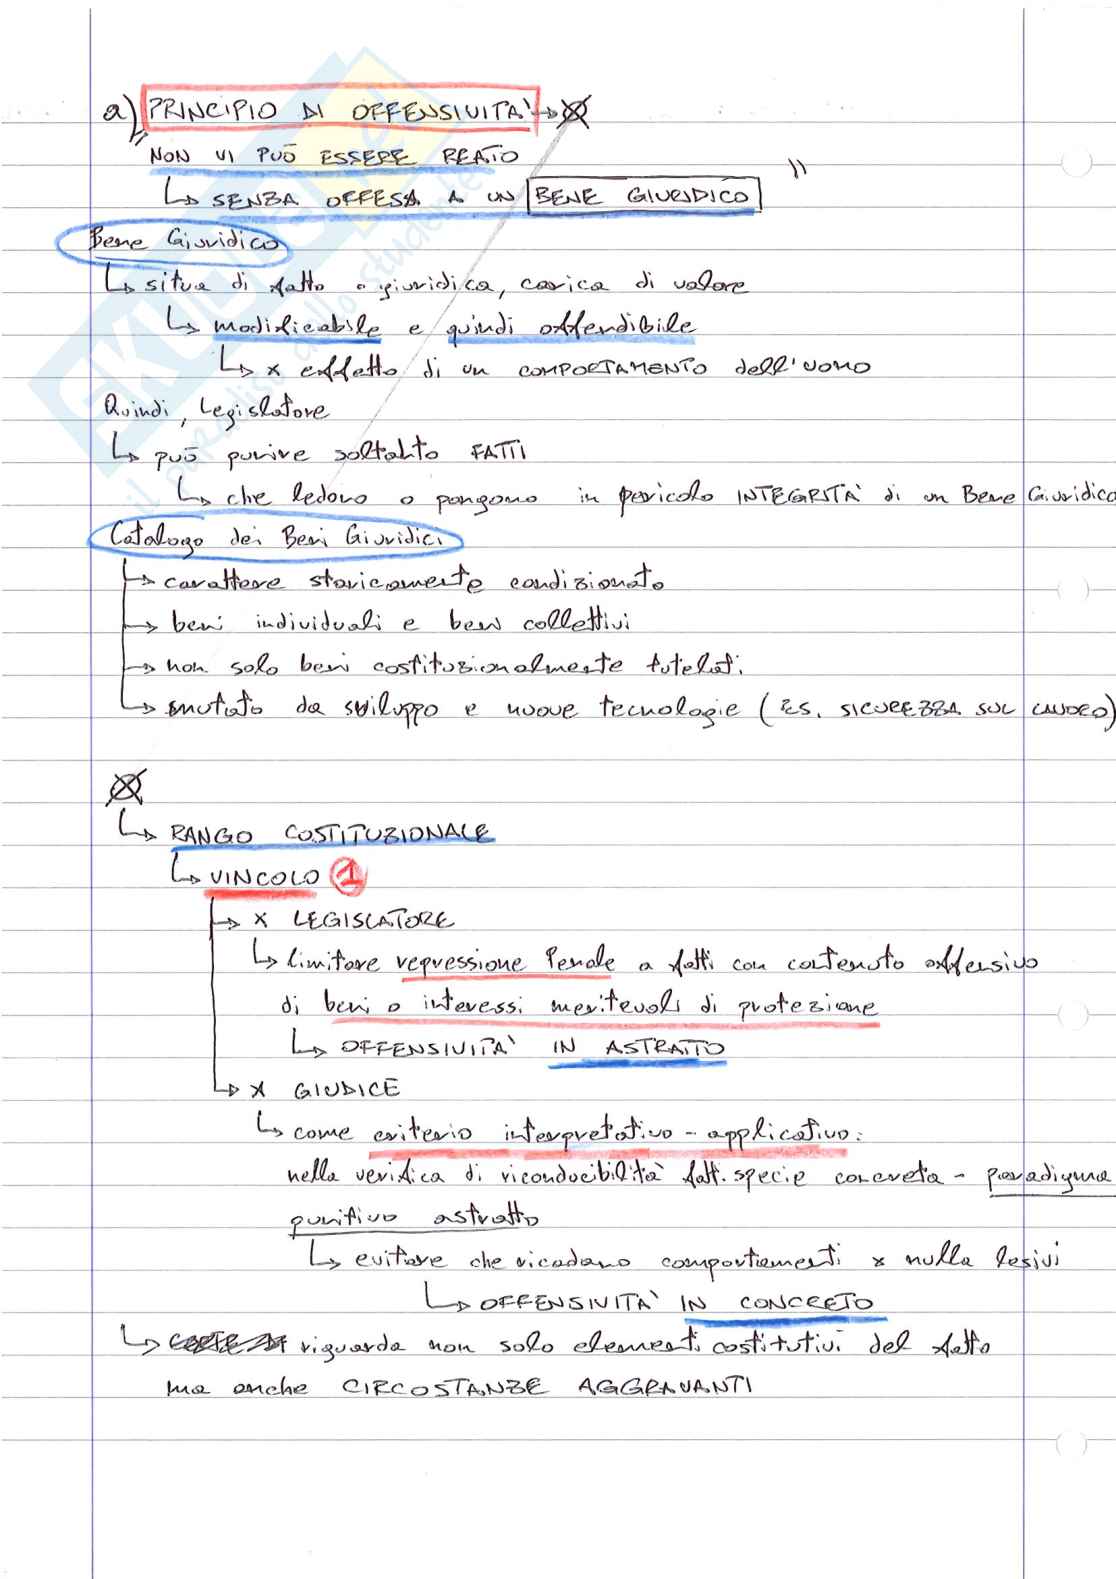 a) PRINCIPIO DI OFFENSIVITA' →
" NON VI PUÒ ESSERE REATO
↳ SENZA OFFESA A UN BENE GIURIDICO "
Bene Giuridico
↳ situa di fatto o giuridica, carica di valore
↳ modificabile e quindi offendibile
↳ x effetto di un COMPORTAMENTO dell'UOMO
Quindi, Legislatore
↳ può punire soltanto FATTI
↳ che ledono o pongono in pericolo INTEGRITÀ di un Bene Giuridico
Catalogo dei Beni Giuridici
→ carattere storicamente condizionato
→ beni individuali e beni collettivi
→ non solo beni costituzionalmente tutelati
↳ mutato da sviluppo e nuove tecnologie (ES. SICUREZZA SUL LAVORO)
↳ RANGO COSTITUZIONALE
↳ VINCOLO 1
→ x LEGISLATORE
↳ limitare repressione Penale a fatti con contenuto offensivo
di beni o interessi meritevoli di protezione
↳ OFFENSIVITA' IN ASTRATTO
↳ x GIUDICE
↳ come criterio interpretativo - applicativo:
nella verifica di riconducibilità fattispecie concreta - paradigma
punitivo astratto
↳ evitare che ricadano comportamenti x nulla lesivi
↳ OFFENSIVITA' IN CONCRETO
↳ riguarda non solo elementi costitutivi del fatto
ma anche CIRCOSTANZE AGGRAVANTI
SKUOLA.net
il paradiso dello studente